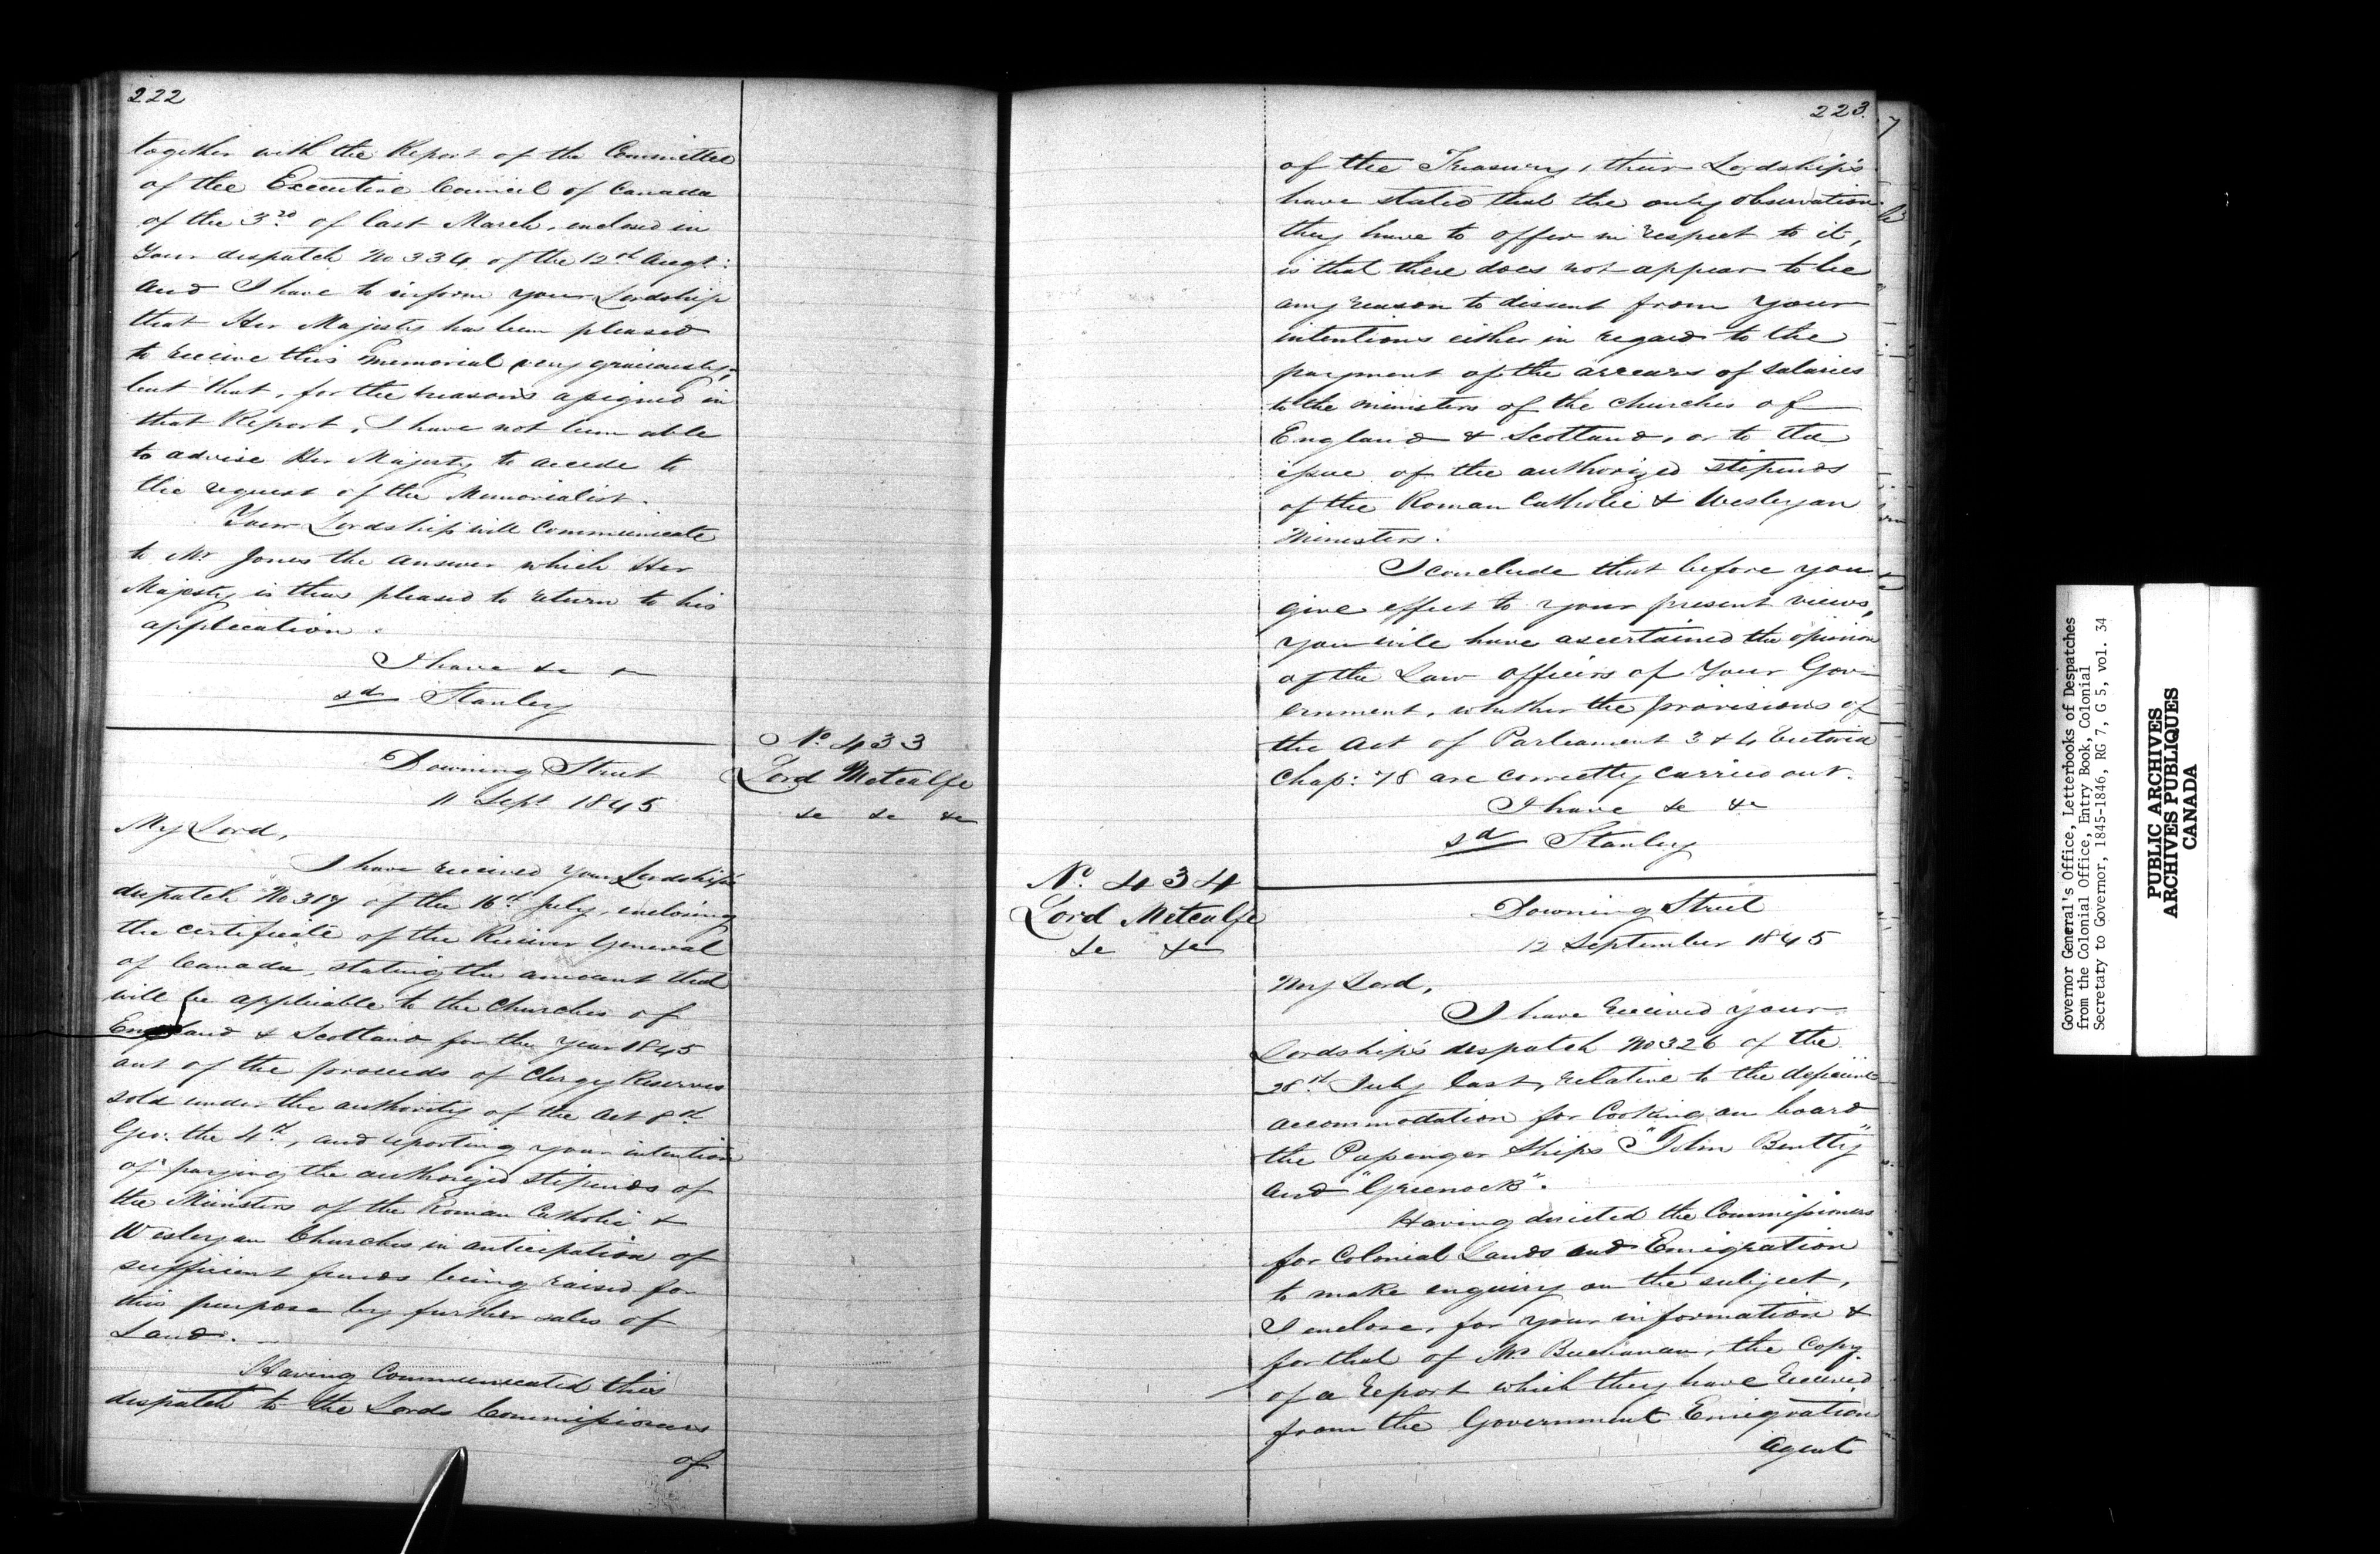 222
together with the Report of the Committee
of the Executive Council of Canada
of the 3rd of last March, enclosed in
Your dispatch No 334 of the 12th Augt:
and I have to inform your Lordship
that Her Majesty has been pleased
to receive this memorial very graciously,
but that, for the reasons assigned in
that Report, I have not been able
to advise Her Majesty to accede to
the request of the Memorialist.
Your Lordship will Communicate
to Mr Jones the answer which Her
Majesty is thus pleased to return to his
application.
I have &c
sd Stanley
No. 433
Lord Metcalfe
&c &c &c
Downing Street
11 Sept 1845
My Lord,
I have received Your Lordship's
dispatch No 317 of the 16th July, enclosing
the certificate of the Receiver General
of Canada, stating the amount that
will be applicable to the Churches of
England & Scotland for the year 1845
out of the proceeds of Clergy Reserves
sold under the authority of the Act 8th
Geo. the 4th, and reporting your intention
of paying the authorized stipends of
the Ministers of the Roman Catholic &
Wesleyan Churches in anticipation of
sufficient funds being raised for
this purpose by further sales of
Land.
Having Communicated this
dispatch to the Lords Commissioners
of
223.
of the Treasury, their Lordship's
have stated that the only observation
they have to offer in respect to it,
is that there does not appear to be
any reason to dissent from your
intentions either in regard to the
payment of the arrears of salaries
to the ministers of the Churches of
England & Scotland, or to the
issue of the authorized stipends
of the Roman Catholic & Wesleyan
Ministers.
I conclude that before you
give effect to your present views,
you will have ascertained the opinion
of the Law officers of Your Gov-
ernment, whether the provisions of
the Act of Parliament 3 & 4 Victoria
Chap: 78 are correctly carried out.
I have &c &c
sd Stanley
No. 434
Lord Metcalfe
&c &c
Downing Street
12 September 1845
My Lord,
I have received your
Lordship's despatch No 326 of the
28th July last, relative to the deficient
accommodation for Cooking on board
the Passenger Ships "John Bentley"
and "Greenock".
Having directed the Commissioners
for Colonial Lands and Emigration
to make enquiry on the subject,
I enclose, for your information &
for that of Mr Buchanan, the Copy
of a Report which they have received
from the Government Emigration
Agent
Governor General's Office, Letterbooks of Despatches
from the Colonial Office, Entry Book, Colonial
Secretary to Governor, 1845-1846, RG 7, G 5, vol. 34
PUBLIC ARCHIVES
ARCHIVES PUBLIQUES
CANADA